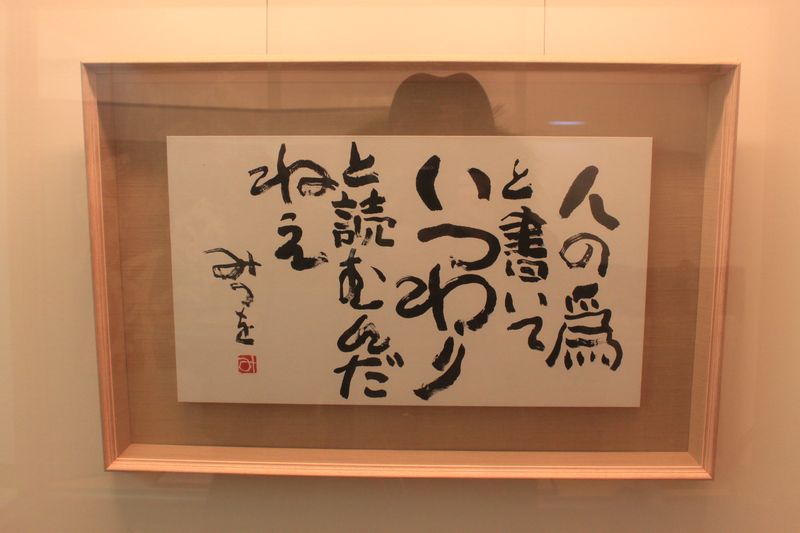 人の為
と書いて
いつわり
と読むんだ
ねえ
みつを
み